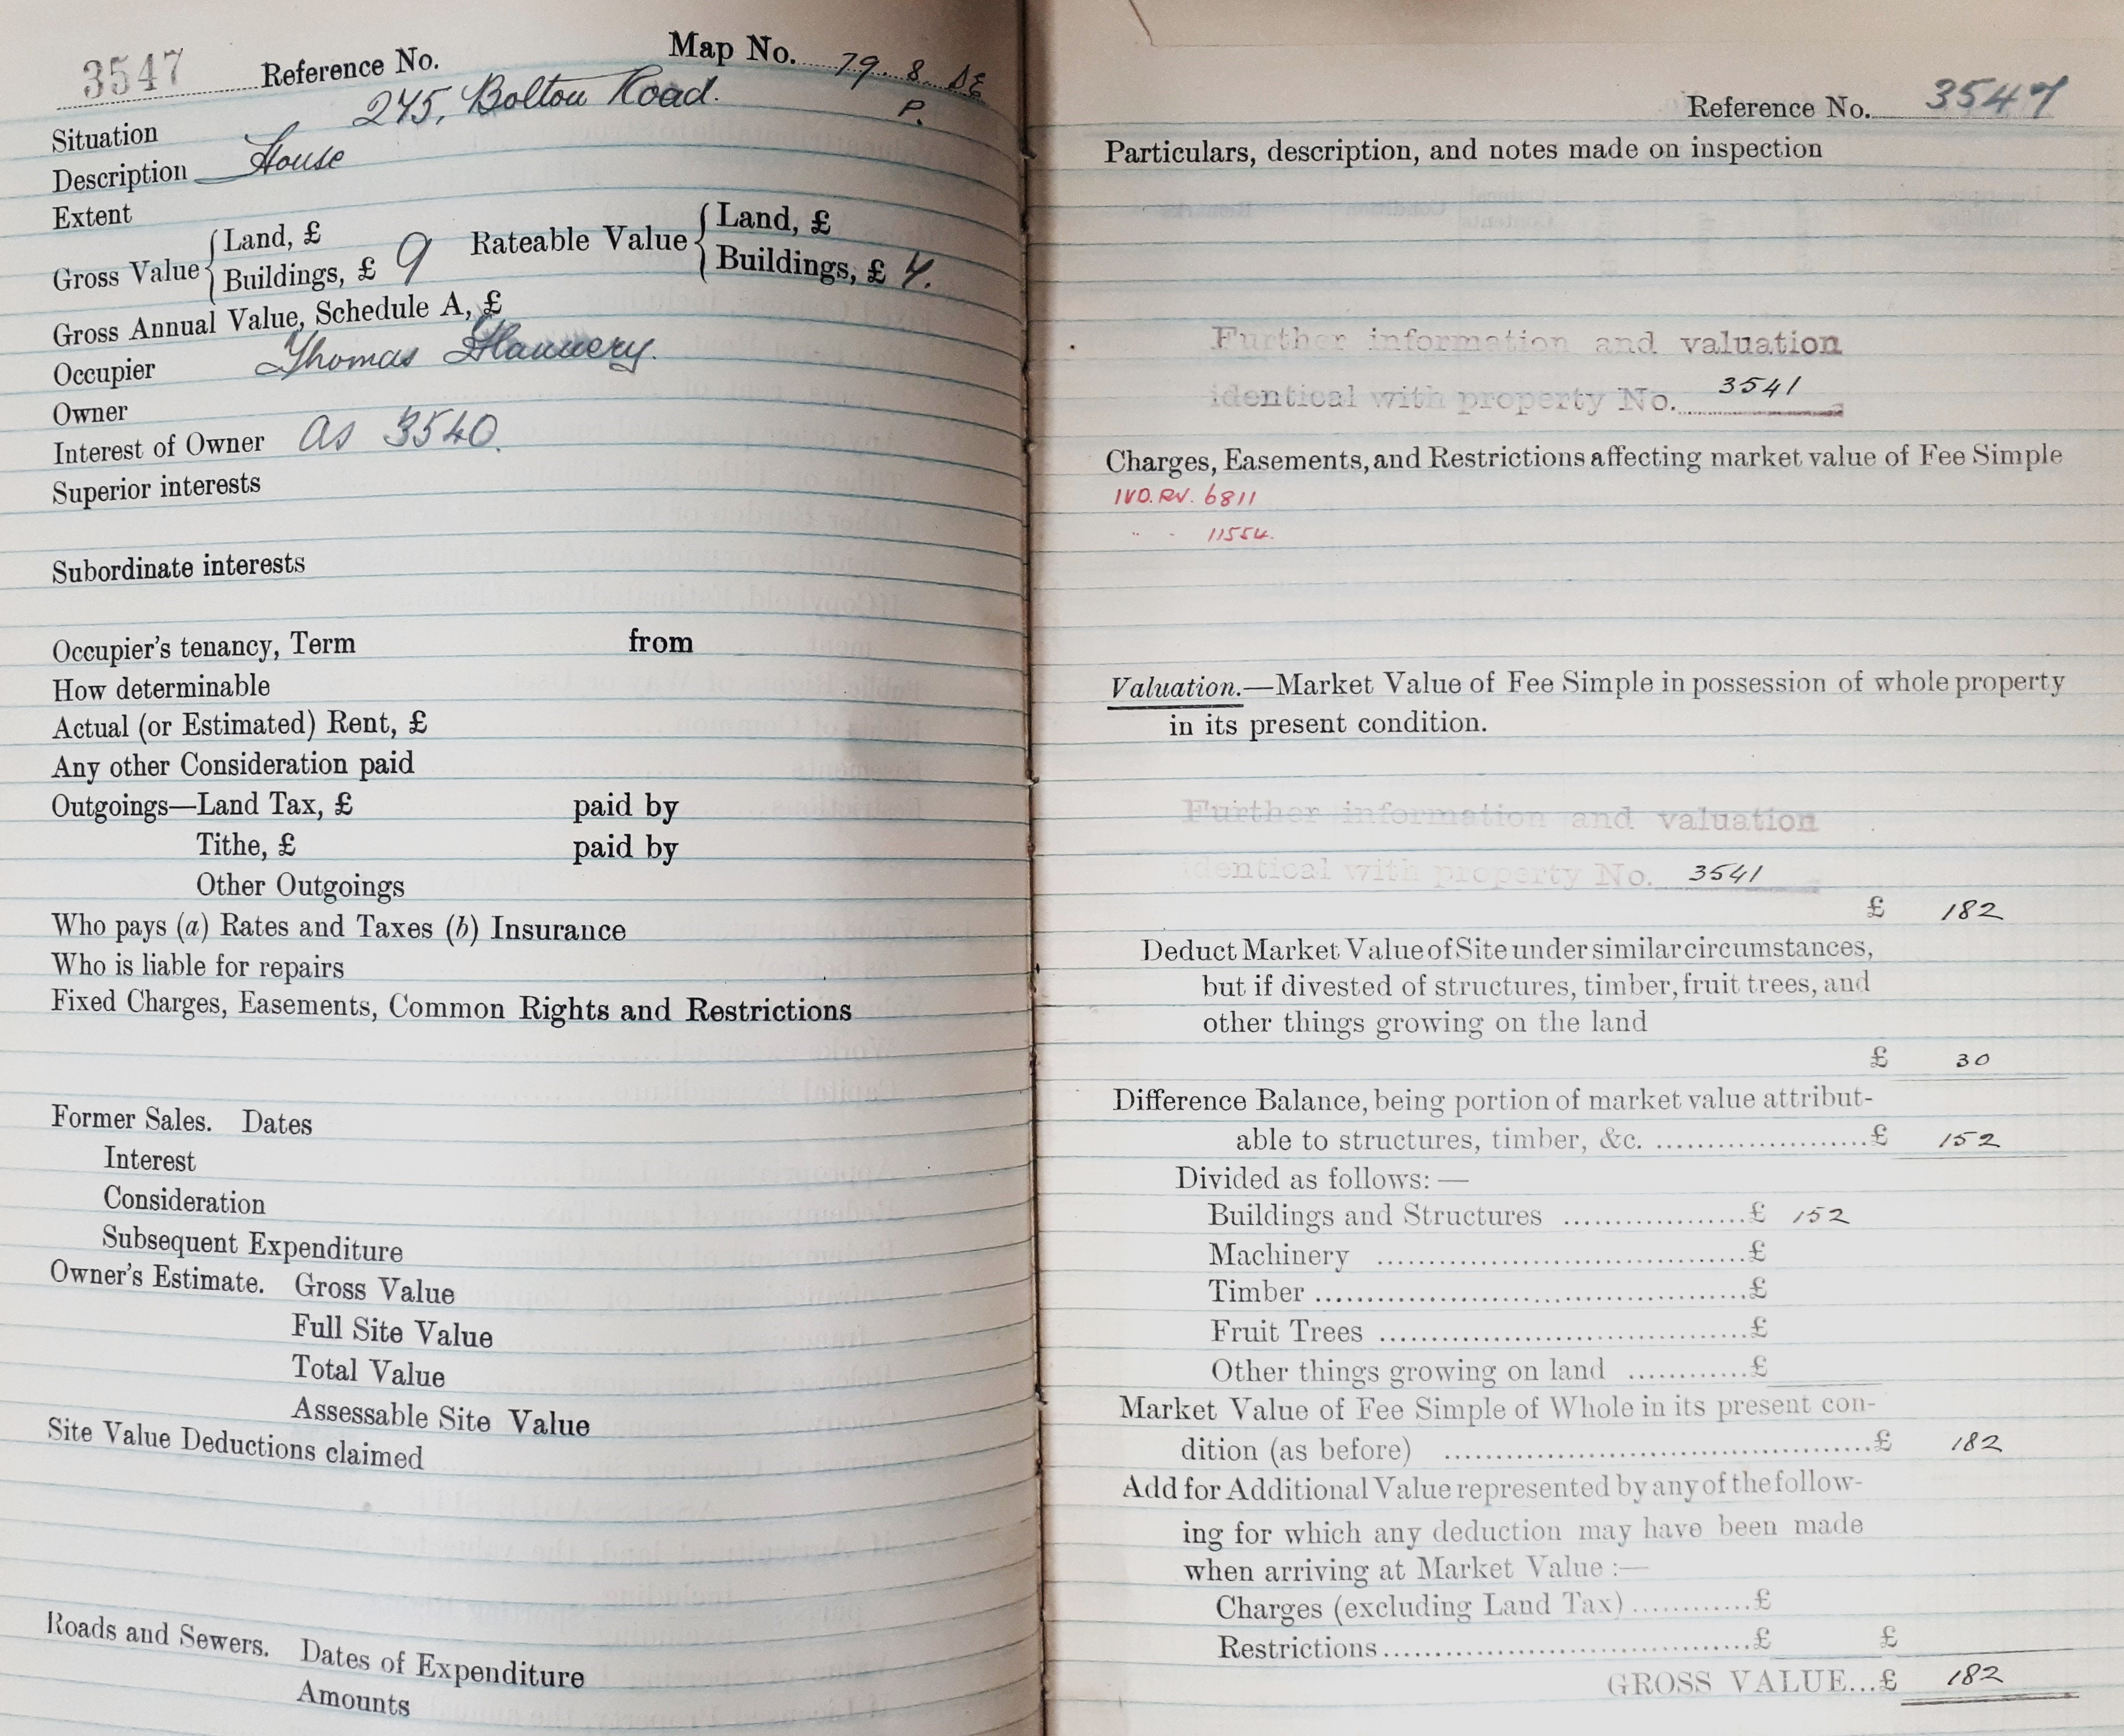 3547 Reference No. Map No. 79. 8 DE
P.
Situation 245, Bolton Road.
Description House
Extent
Gross Value { Land, £
Buildings, £ 9
Rateable Value { Land, £
Buildings, £ 4.
Gross Annual Value, Schedule A, £
Occupier Thomas Flannery.
Owner
Interest of Owner as 3540.
Superior interests
Subordinate interests
Occupier's tenancy, Term from
How determinable
Actual (or Estimated) Rent, £
Any other Consideration paid
Outgoings—Land Tax, £ paid by
Tithe, £ paid by
Other Outgoings
Who pays (a) Rates and Taxes (b) Insurance
Who is liable for repairs
Fixed Charges, Easements, Common Rights and Restrictions
Former Sales. Dates
Interest
Consideration
Subsequent Expenditure
Owner's Estimate. Gross Value
Full Site Value
Total Value
Assessable Site Value
Site Value Deductions claimed
Roads and Sewers. Dates of Expenditure
Amounts
Reference No. 3547
Particulars, description, and notes made on inspection
Further information and valuation
identical with property No. 3541
Charges, Easements, and Restrictions affecting market value of Fee Simple
IVD. RV. 6811
" " 11554.
Valuation.—Market Value of Fee Simple in possession of whole property
in its present condition.
Further information and valuation
identical with property No. 3541
£ 182
Deduct Market Value of Site under similar circumstances,
but if divested of structures, timber, fruit trees, and
other things growing on the land
£ 30
Difference Balance, being portion of market value attribut-
able to structures, timber, &c. ....................£ 152
Divided as follows:—
Buildings and Structures ..................£ 152
Machinery ....................................£
Timber ..........................................£
Fruit Trees ....................................£
Other things growing on land ............£
Market Value of Fee Simple of Whole in its present con-
dition (as before) ..........................................£ 182
Add for Additional Value represented by any of the follow-
ing for which any deduction may have been made
when arriving at Market Value :—
Charges (excluding Land Tax) ............£
Restrictions ....................................£ £
GROSS VALUE...£ 182